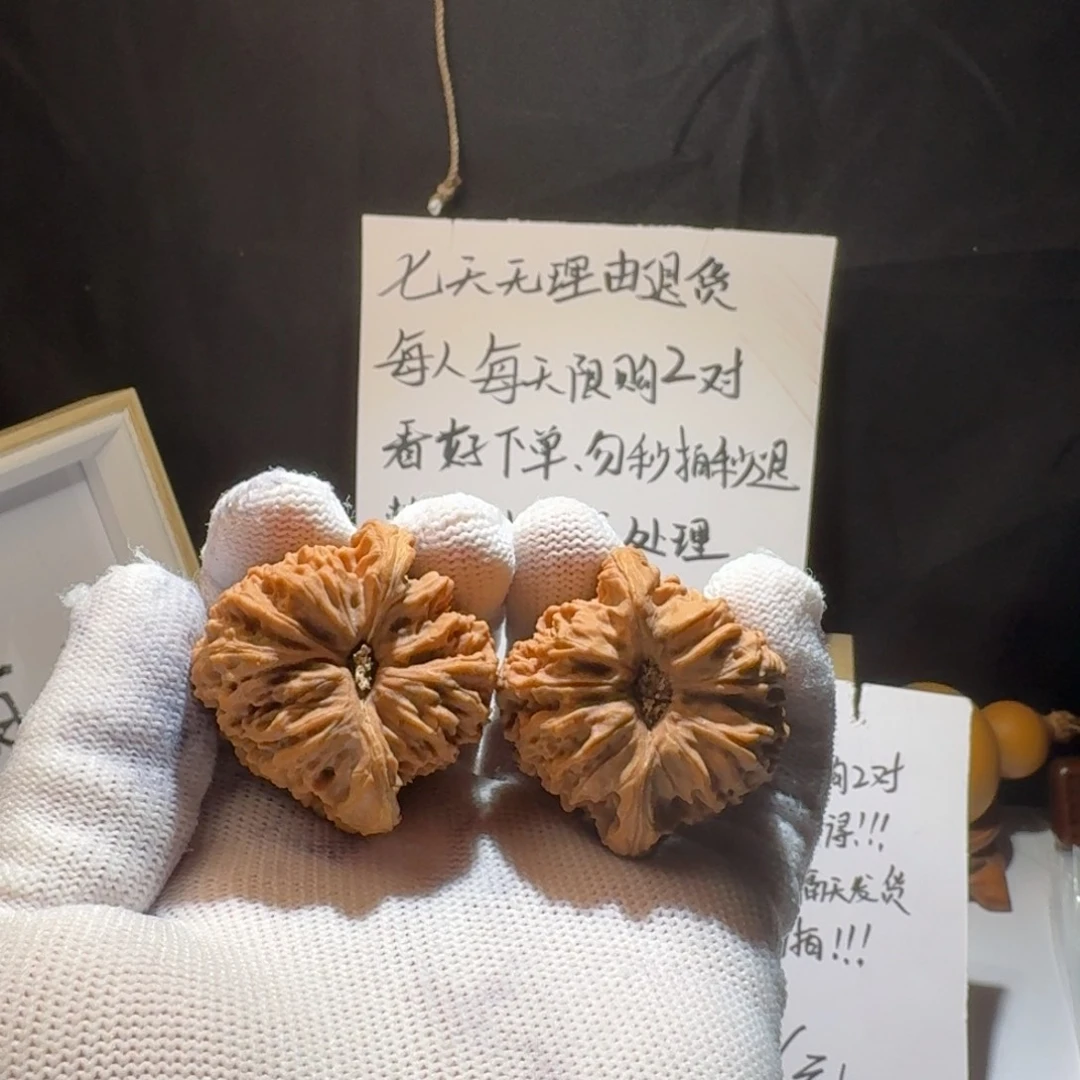 七天无理由退货
每人每天限购2对
看好下单、勿秒拍秒退
处理
购2对
得!!!
隔天发货
拍!!!